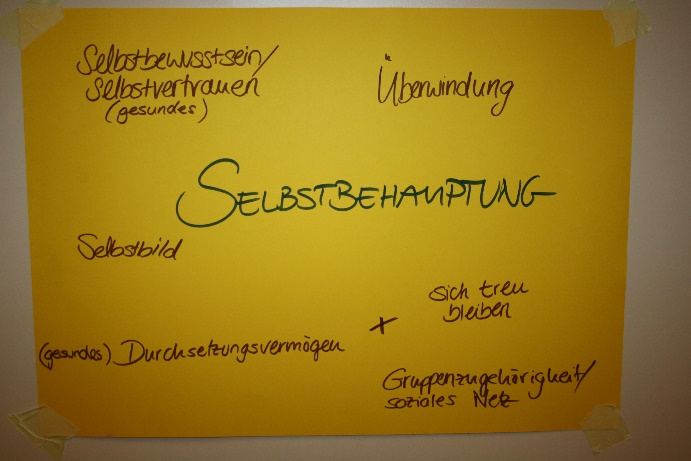 Selbstbewusstsein/
Selbstvertrauen
(gesundes)
Überwindung
SELBSTBEHAUPTUNG
Selbstbild
sich treu
bleiben
+
(gesundes) Durchsetzungsvermögen
Gruppenzugehörigkeit/
soziales Netz